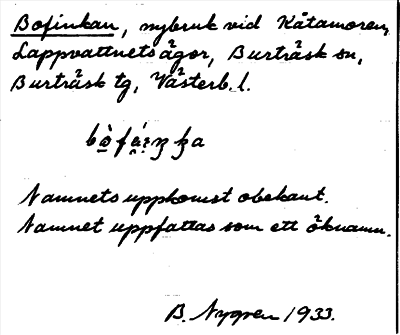 Bofinkan, nybruk vid Kåtamoren,
Lappvattnets ägor, Burträsk sn,
Burträsk tg, Västerb. l.
Namnets uppkomst obekant.
Namnet uppfattas som ett öknamn.
B. Nygren 1933.